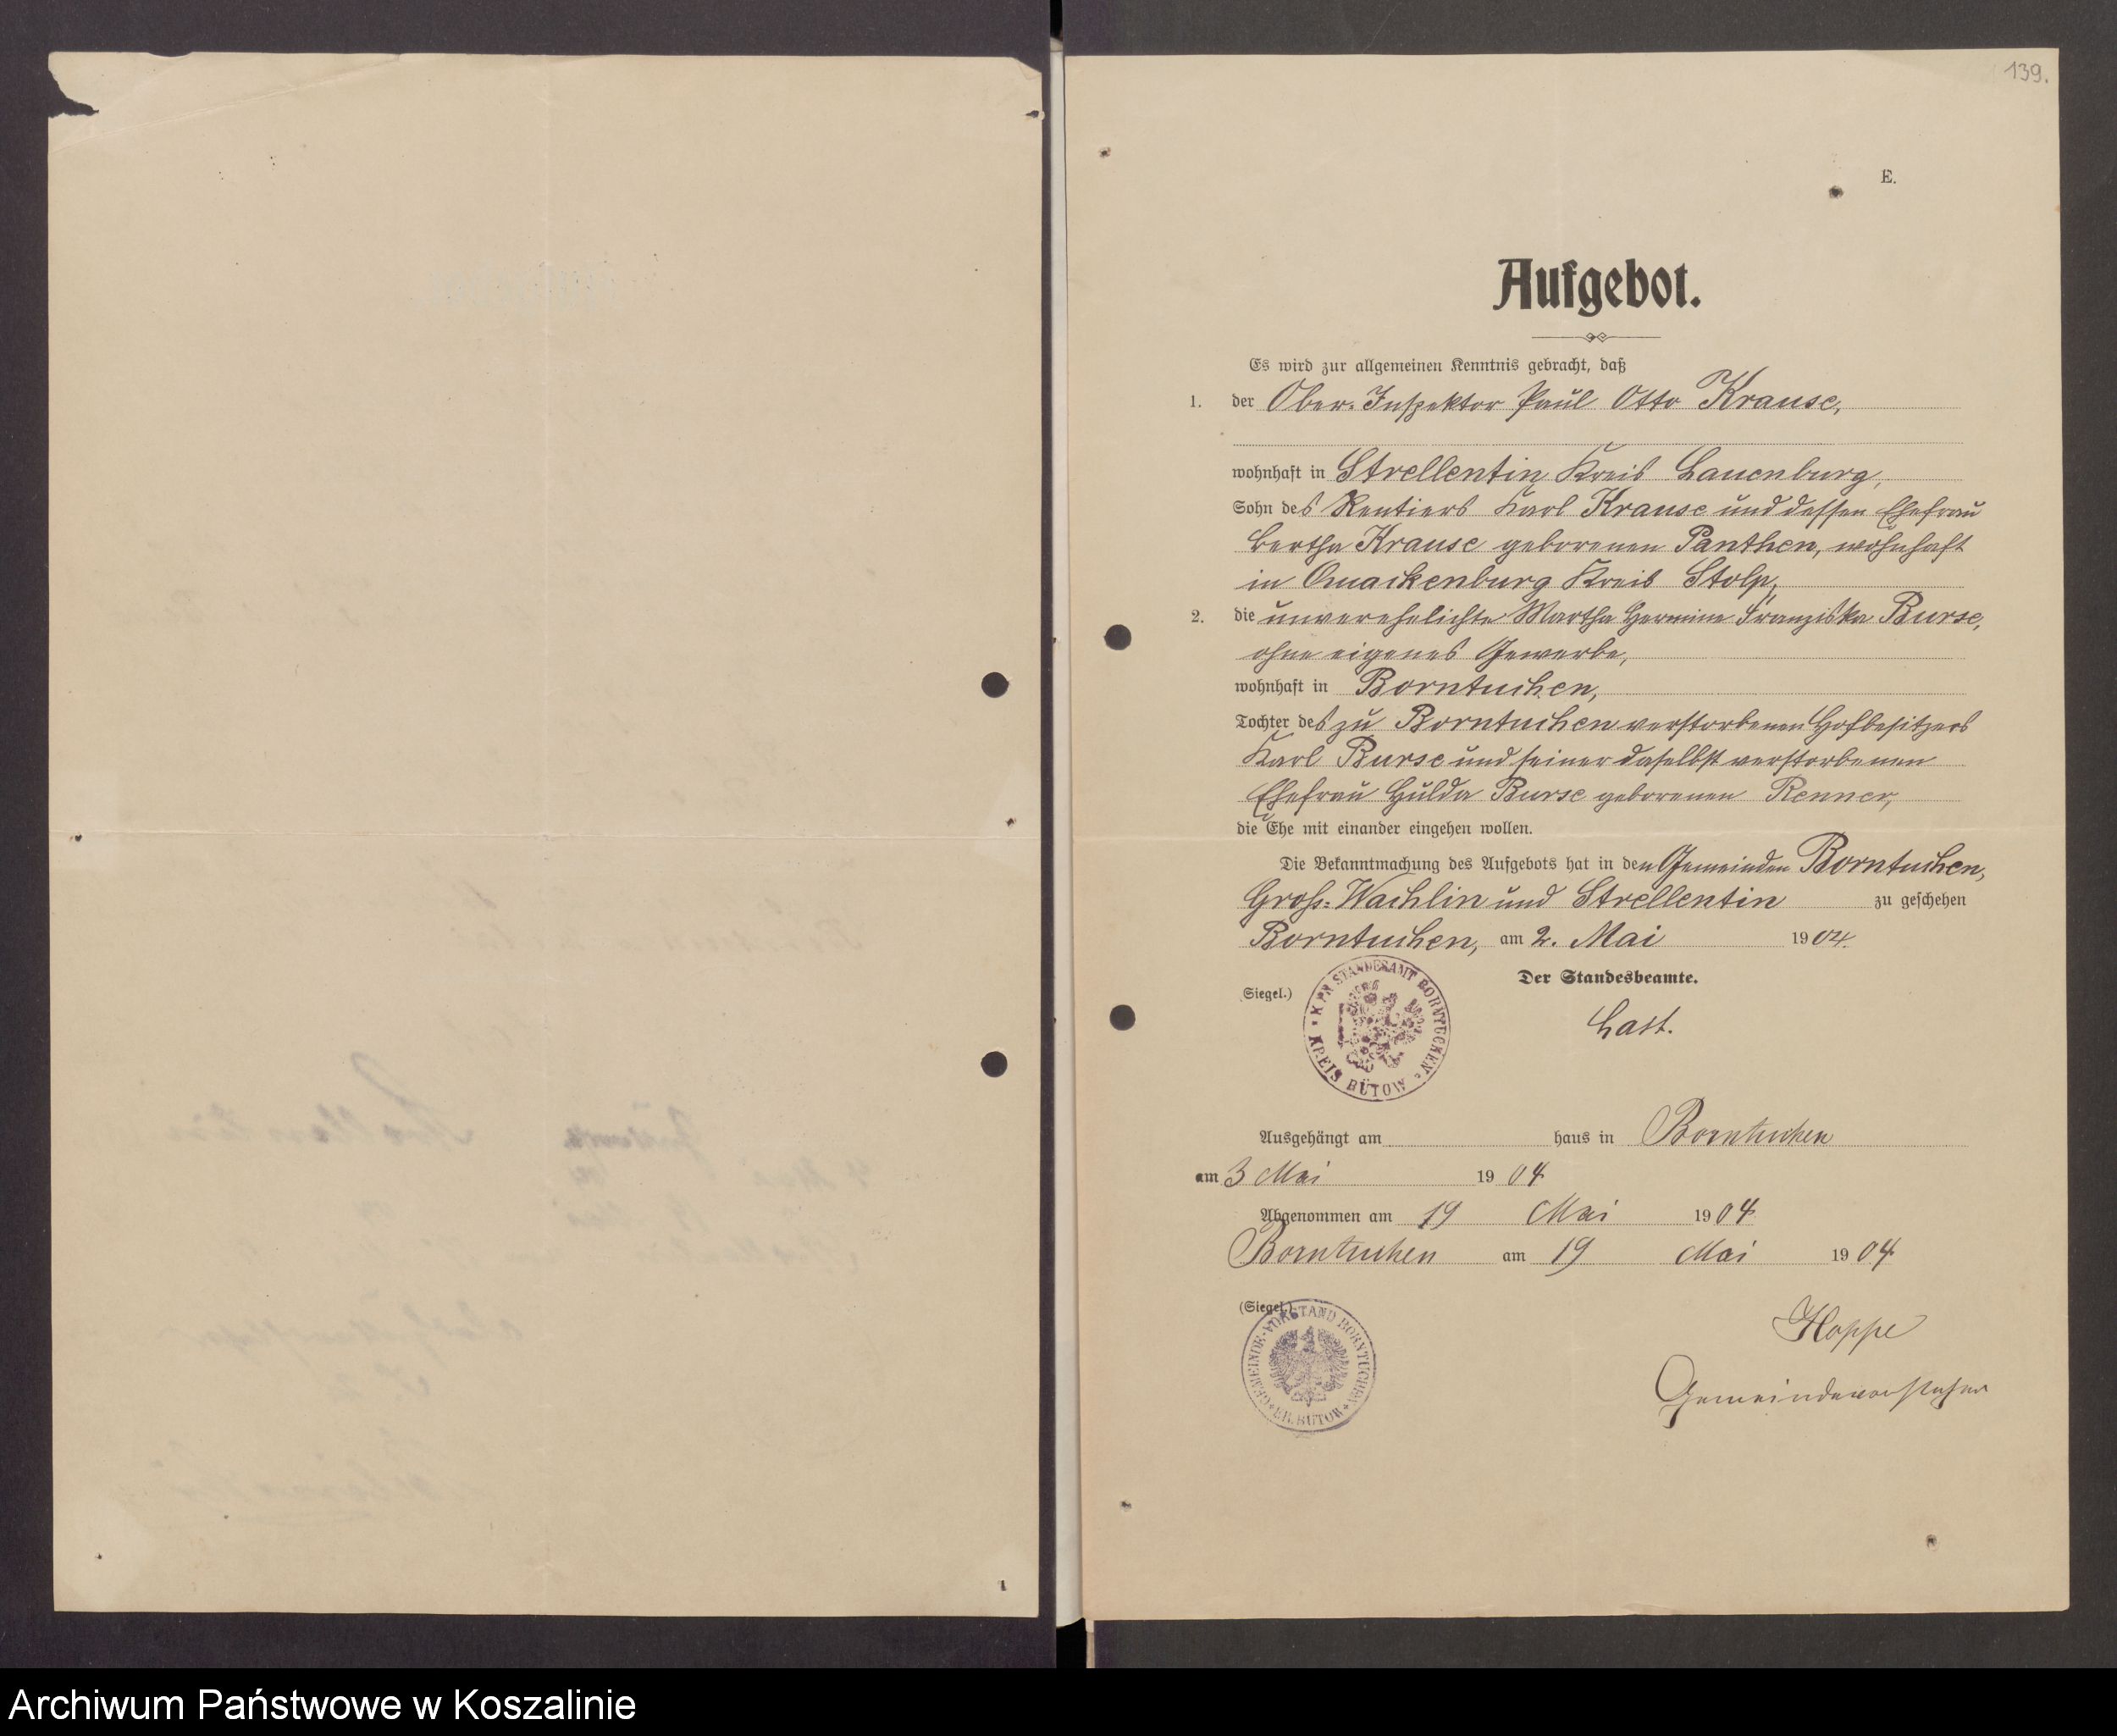 139.
E.
Aufgebot.
Es wird zur allgemeinen Kenntnis gebracht, daß
1. der Ober-Inspektor Paul Otto Krause,
wohnhaft in Strellentin Kreis Lauenburg,
Sohn des Rentiers Karl Krause und dessen Ehefrau
Bertha Krause geborenen Panthen, wohnhaft
in Quackenburg Kreis Stolp,
2. die unverehelichte Martha Hermine Franziska Burse,
ohne eigenes Gewerbe,
wohnhaft in Borntuchen,
Tochter des zu Borntuchen verstorbenen Hofbesitzers
Karl Burse und seiner daselbst verstorbenen
Ehefrau Hulda Burse geborenen Renner,
die Ehe mit einander eingehen wollen.
Die Bekanntmachung des Aufgebots hat in den Gemeinden Borntuchen,
Groß-Wachlin und Strellentin zu geschehen
Borntuchen, am 2. Mai 1904.
(Siegel.) Der Standesbeamte.
K. PR. STANDESAMT BORNTUCHEN * KREIS BÜTOW *
Last.
Ausgehängt am haus in Borntuchen
am 3 Mai 1904
Abgenommen am 19 Mai 1904
Borntuchen am 19 Mai 1904
(Siegel.)
GEMEINDE-VORSTAND BORNTUCHEN * KR. BÜTOW *
Hoppe
Gemeindevorsteher
Archiwum Państwowe w Koszalinie